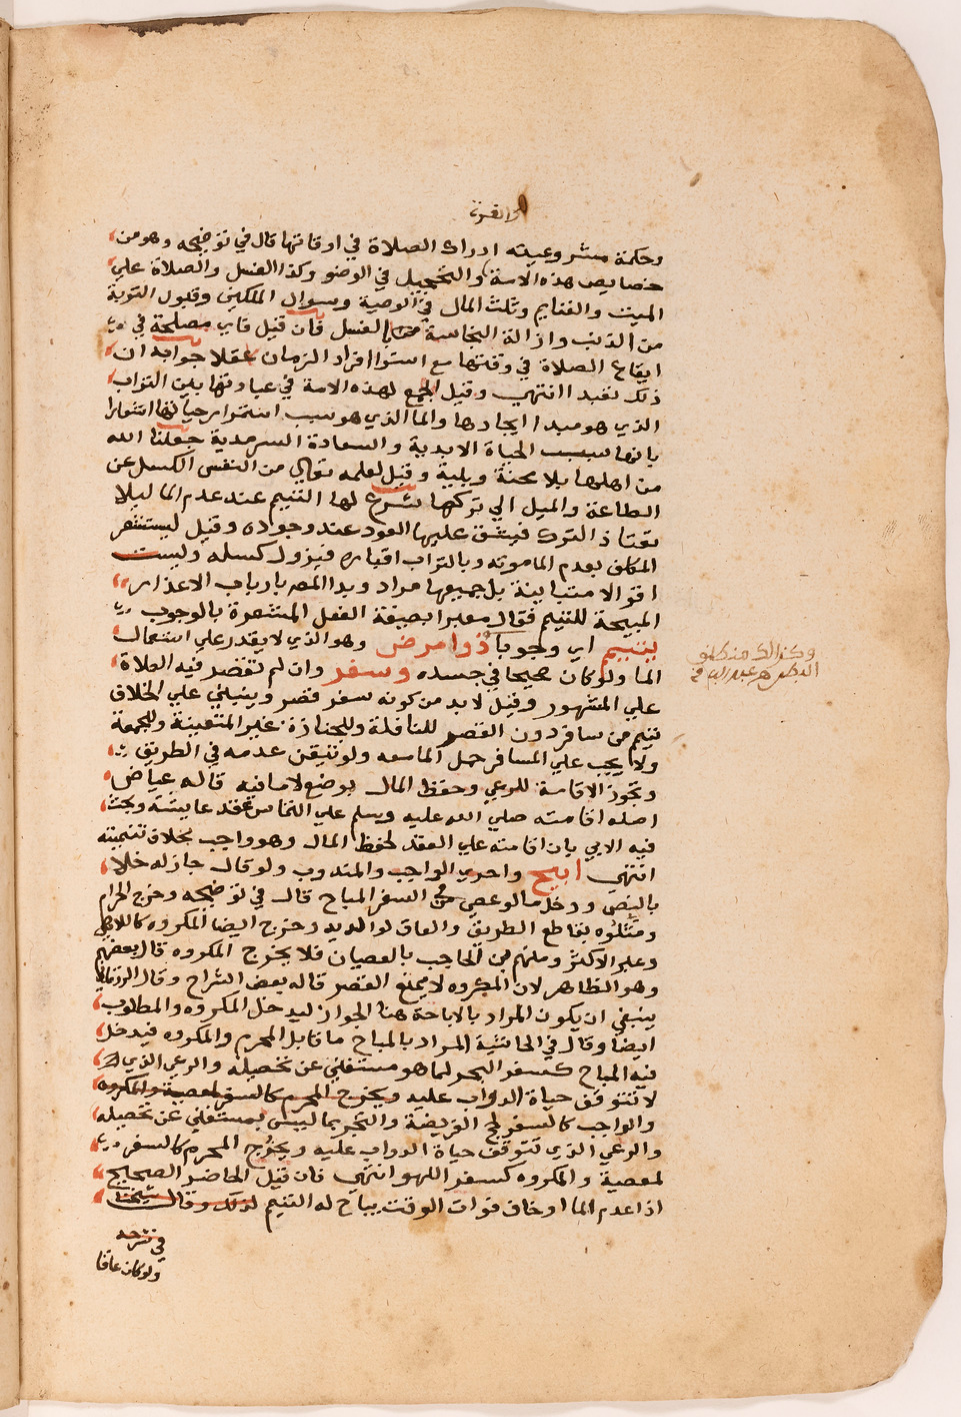 وحكمة مشروعيته ادراك الصلاة في اوقاتها قال في توضيحه وهو من
خصايص هذه الامة والتحجيل في الوضو وكذا الغسل والصلاة علي
الميت والغنايم وثلث المال في الوصية وسوال الملكين وقبول التوبة
من الذنب وازالة النجاسة بالغسل فان قيل فاي مصلحة في
ايقاع الصلاة في وقتها مع استوا افراد الزمان عقلا جوابه ان
ذلك تعبد انتهي وقيل الجمع لهذه الامة في عبادتها بين التراب
الذي هو مبدا ايجادها والما الذي هو سبب استمرار حياتها اشعارا
بانها سبب الحياة الابدية والسعادة السرمدية جعلنا الله
من اهلها بلا محنة وبلية وقيل لعلمه تعالي من النفس الكسل عن
الطاعة والميل الي تركها شرع لها التيمم عند عدم الما ليلا
تعتاد الترك فيشق عليها العود عند وجوده وقيل ليستشعر
المكلف بعدم الما موته وبالتراب اقباره فيزول كسله وليست
اقوالا متباينة بل جميعها مراد وبدا المص بارباب الاعذار
المبيحة للتيمم فقال معبرا بصيغة الفعل المشعرة بالوجوب
يتيمم اي وجوبا ذوا مرض وهو الذي لا يقدر علي استعمال
الما ولو كان صحيحا في جسده وسفر وان لم تقصر فيه الصلاة
علي المشهور وقيل لا بد من كونه سفر قصر وينبني علي الخلاق
تيمم من سافر دون القصر للنافلة وللجنازة غير المتعينة وللجمعة
ولا يجب علي المسافر حمل الما معه ولو تيقن عدمه في الطريق
وتجوز الاقامة للرعي وحفظ المال بوضع لا ما فيه قاله عياض
اصله اقامته صلي الله عليه وسلم علي التماس عقد عايشة وبحث
فيه الابي بان اقامته علي العقد لحفظ المال وهو واجب بخلاف تنميته
انتهي ابيح واحري الواجب والمندوب ولو قال جاز له خلا
بالنص ودخل ما لو عصي في السفر المباح قال في توضيحه وخرج الحرام
ومثلوه بقاطع الطريق والعاق لوالديه وخرج ايضا المكروه كاللاهي
وعبر الاكثر ومنهم بن الحاجب بالعصيان فلا يخرج المكروه قال بعضهم
وهو الظاهر لان المكروه لا يمنع القصر قاله بعض الشراح وقال
ينبغي ان يكون المراد بالاباحة هنا الجواز ليدخل المكروه والمطلوب
ايضا وقال في الحاشية المراد بالمباح ما قابل المحرم والمكروه فيدخل
فيه المباح كسفر البحر لما هو مستغني عن تحصيله والرعي الذي
لا تتوقف حياة الدواب عليه ويخرج المحرم كالسفر لمعصية والمكروه
والواجب كالسفر لحج الفريضة والتجر بما ليس بمستغني عن تحصيله
والرعي الذي تتوقف حياة الدواب عليه ويخرج المحرم كالسفر
لمعصية والمكروه كسفر اللهو انتهي فان قيل الحاضر الصحيح
اذا عدم الما او خاف فوات الوقت يباح له التيمم لذلك وقال شيخنا
في شرحه
ولو كان عاقا